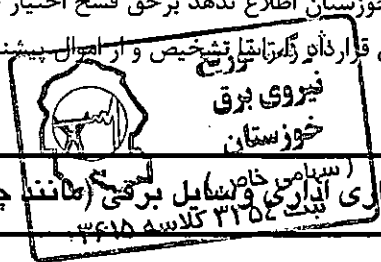 خوزستان اطلاع ندهد برحق فسخ اختیار
قرارداد را تشخیص و از اموال پیشنه
توزیع
نیروی برق
خوزستان
(سهامی خاص)
اری اداری وسایل برقی (مانند چ
ثبت ۳۲۵۴ کلاسه ۳۶۱۵